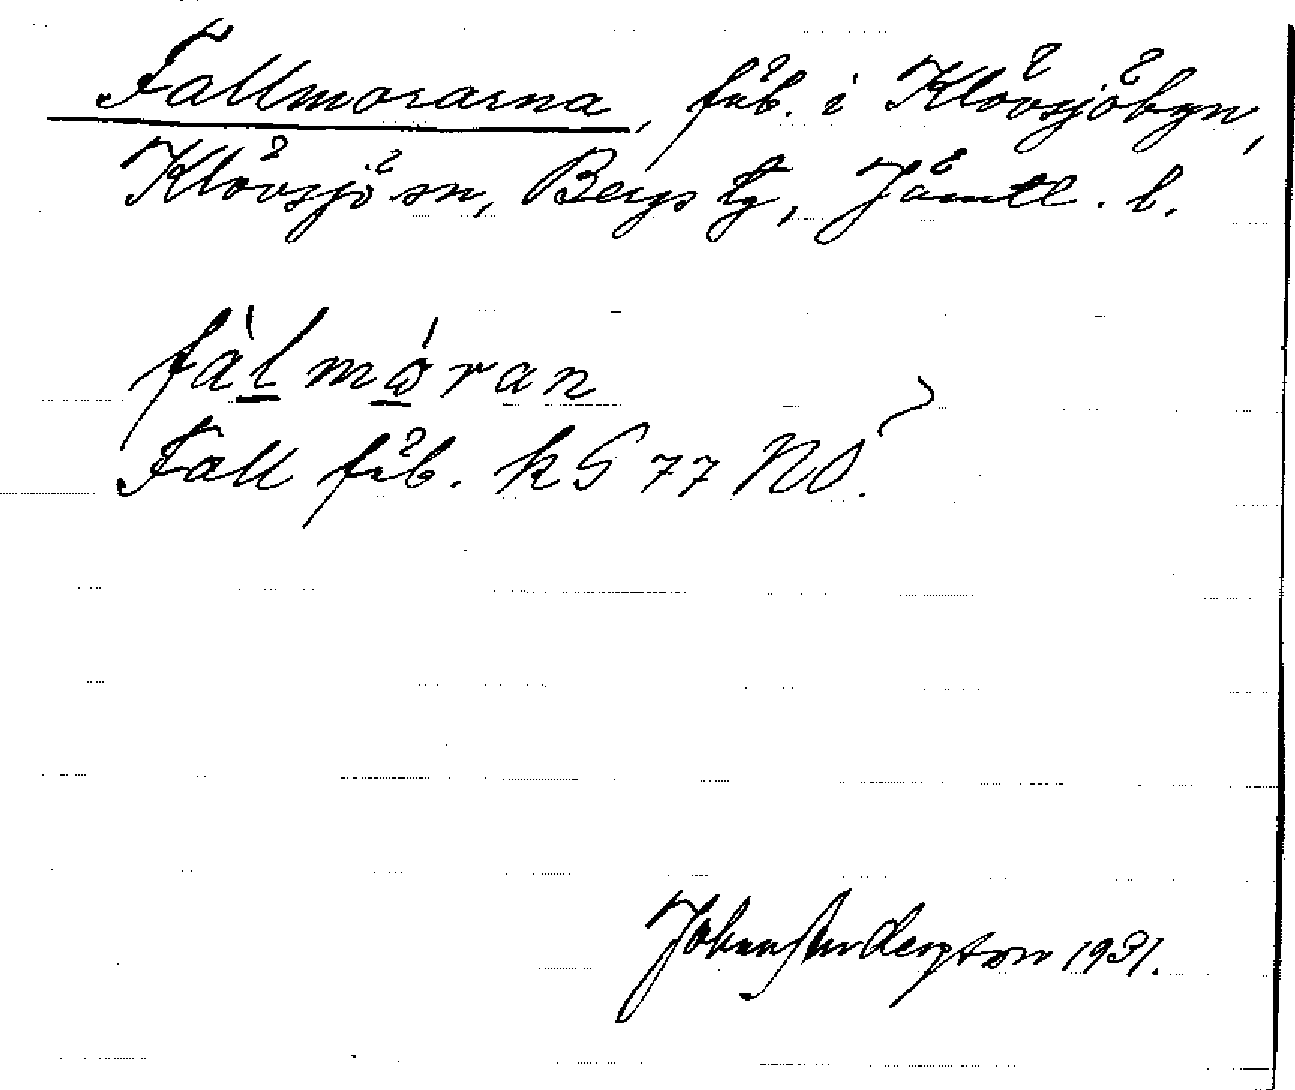 Fallmorarna, fäb. i Klövsjöbyn,
Klövsjö sn, Bergs tg, Jämtl. l.
fàlmòran
Fall fäb. kG 77 NO.
John Anderzton 1931.